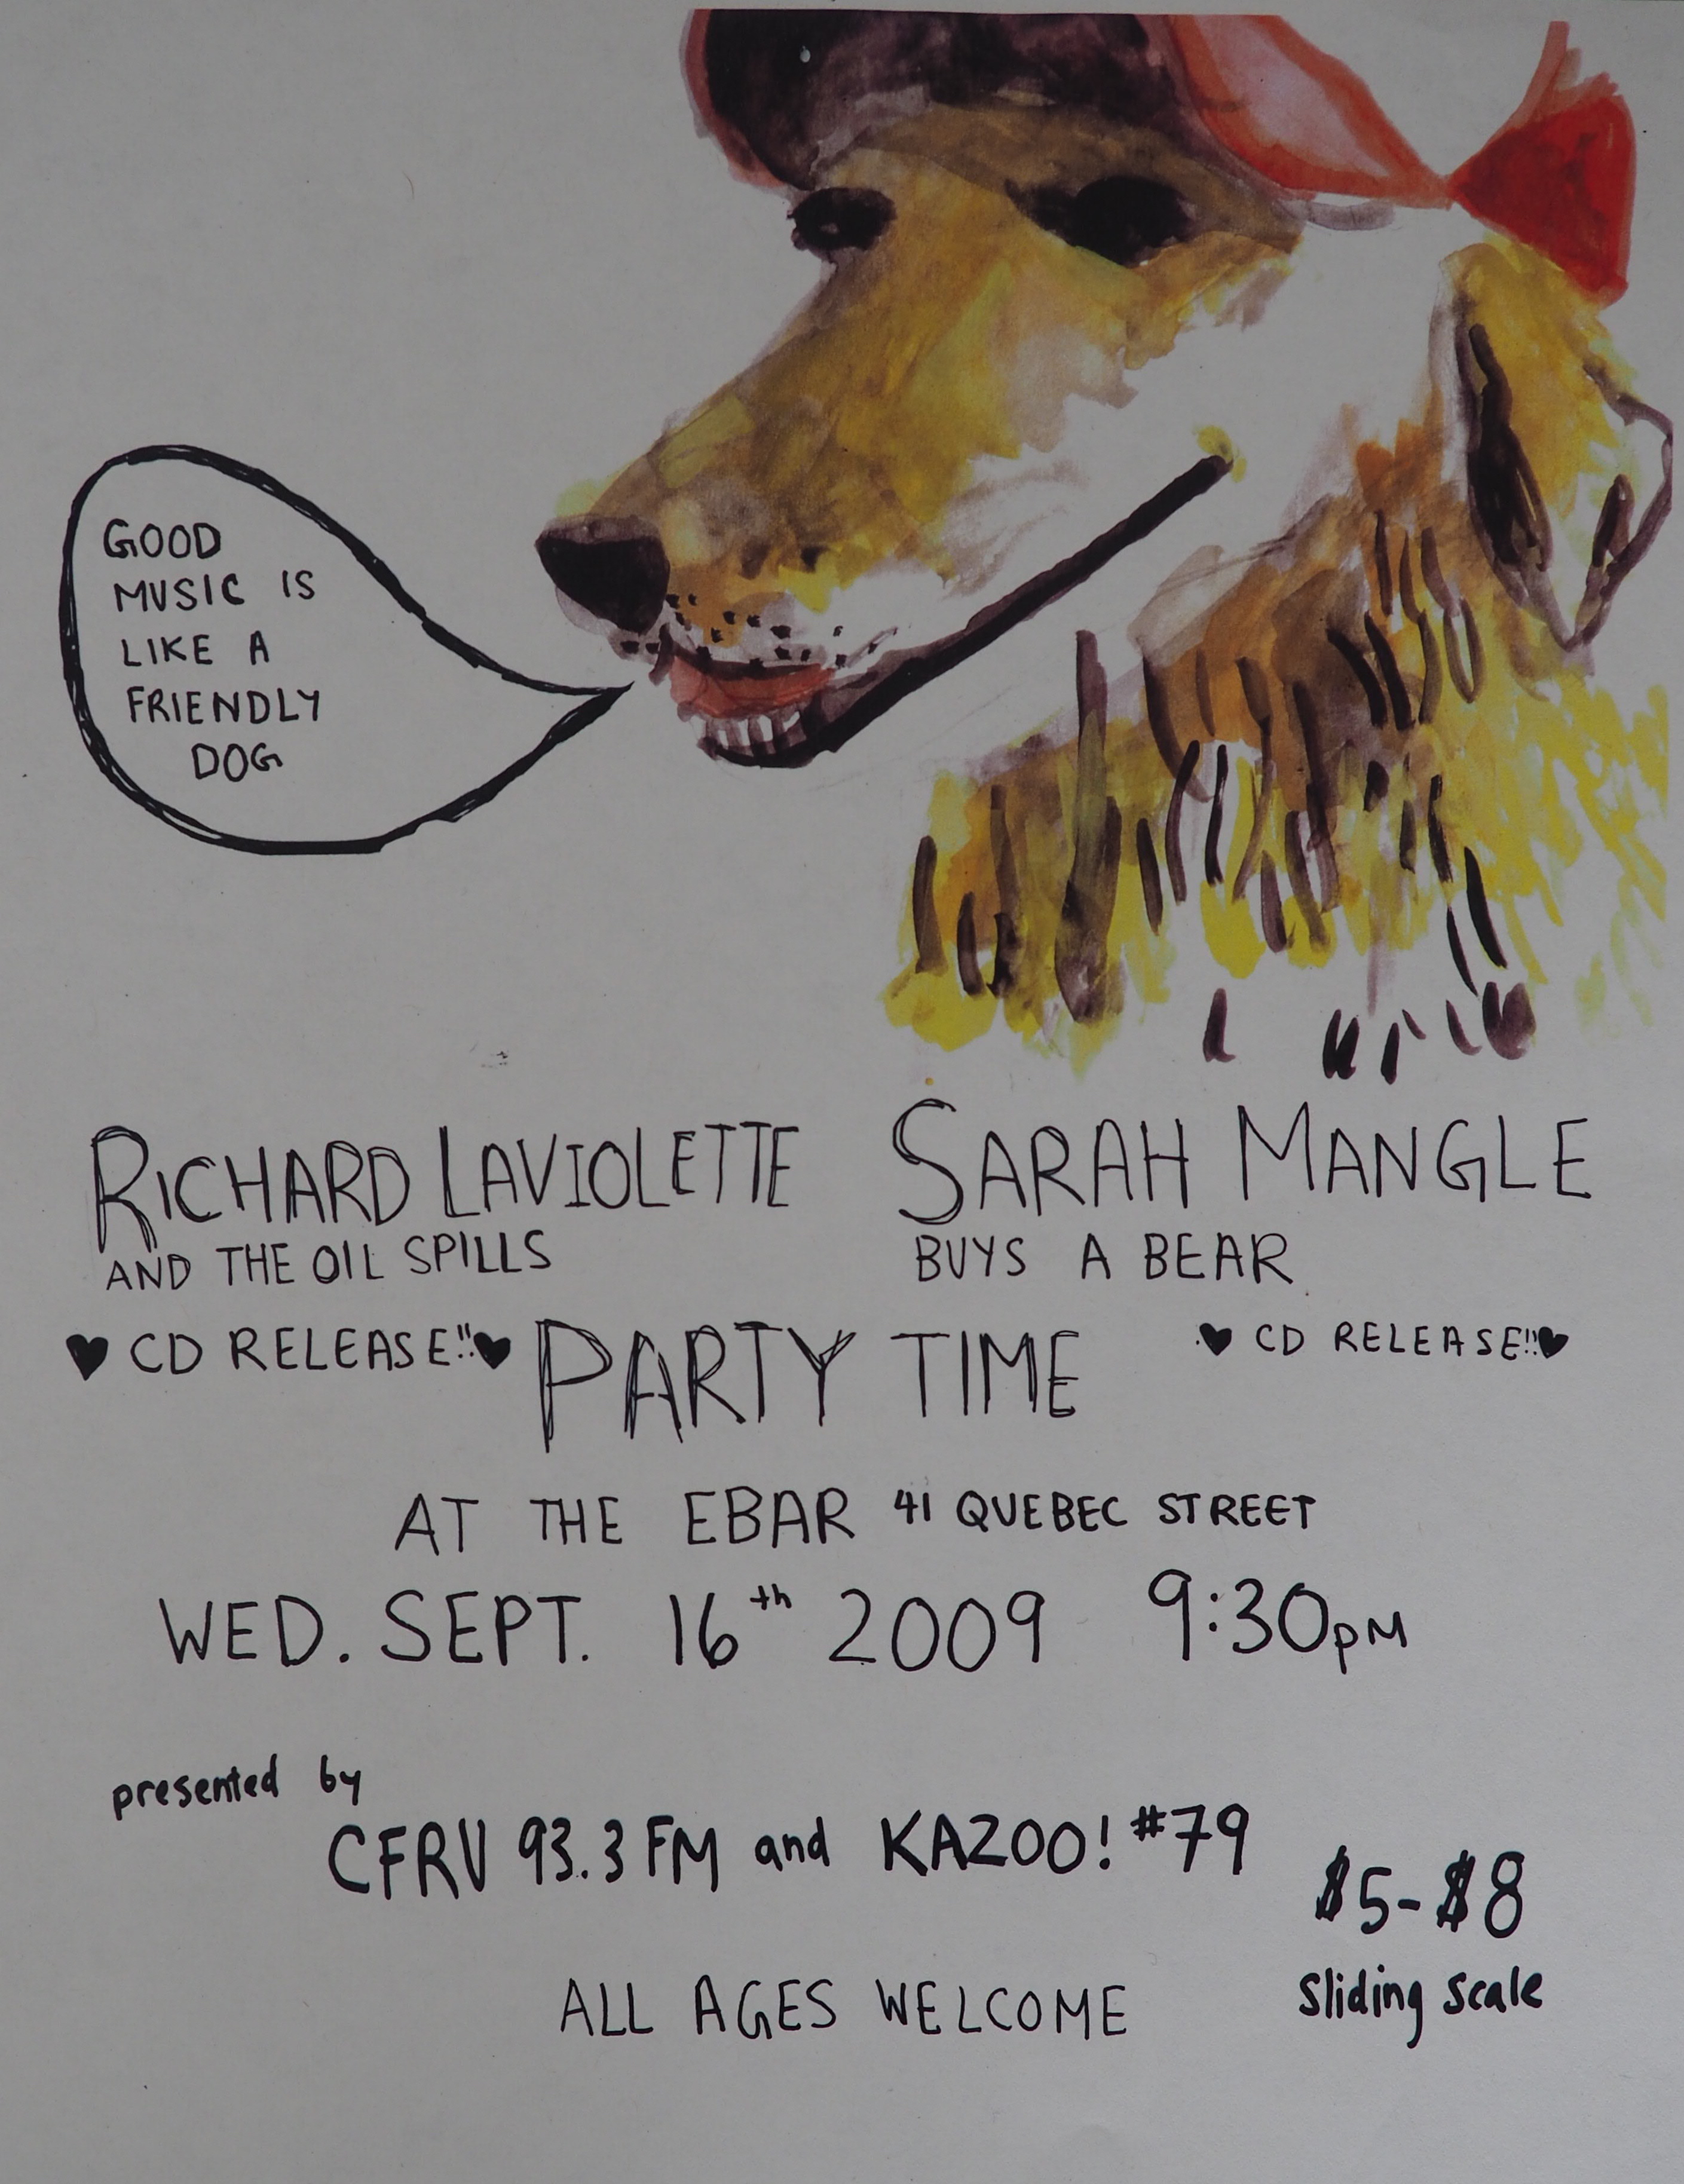 GOOD
MUSIC IS
LIKE A
FRIENDLY
DOG
RICHARD LAVIOLETTE
AND THE OIL SPILLS
♥ CD RELEASE!! ♥
SARAH MANGLE
BUYS A BEAR
♥ CD RELEASE!! ♥
PARTY TIME
AT THE EBAR 41 QUEBEC STREET
WED. SEPT. 16th 2009 9:30PM
presented by
CFRU 93.3 FM and KAZOO! #79
$5-$8
Sliding Scale
ALL AGES WELCOME